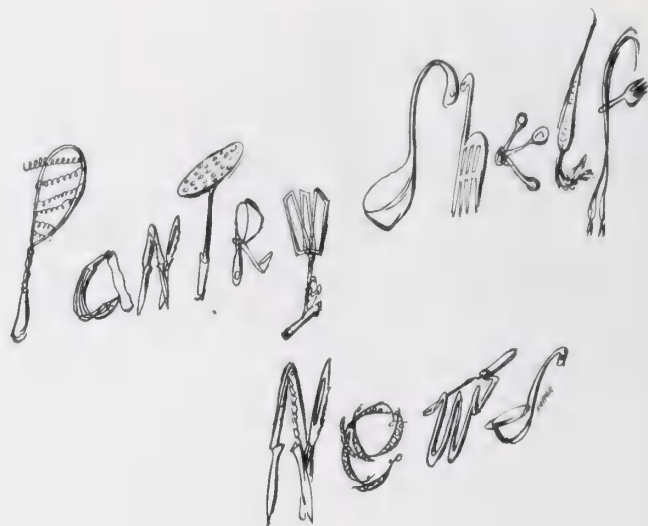 Pantry
Shelf
News